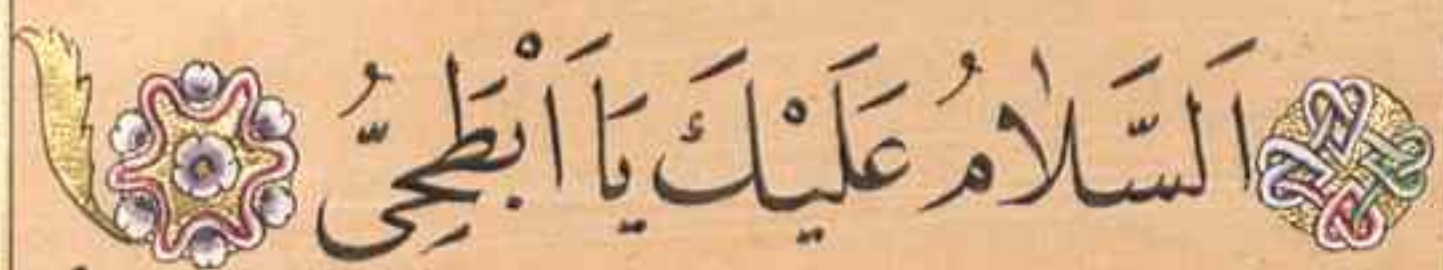 اَلسَّلَامُ عَلَيْكَ يَا اَبْطَحِىُّ